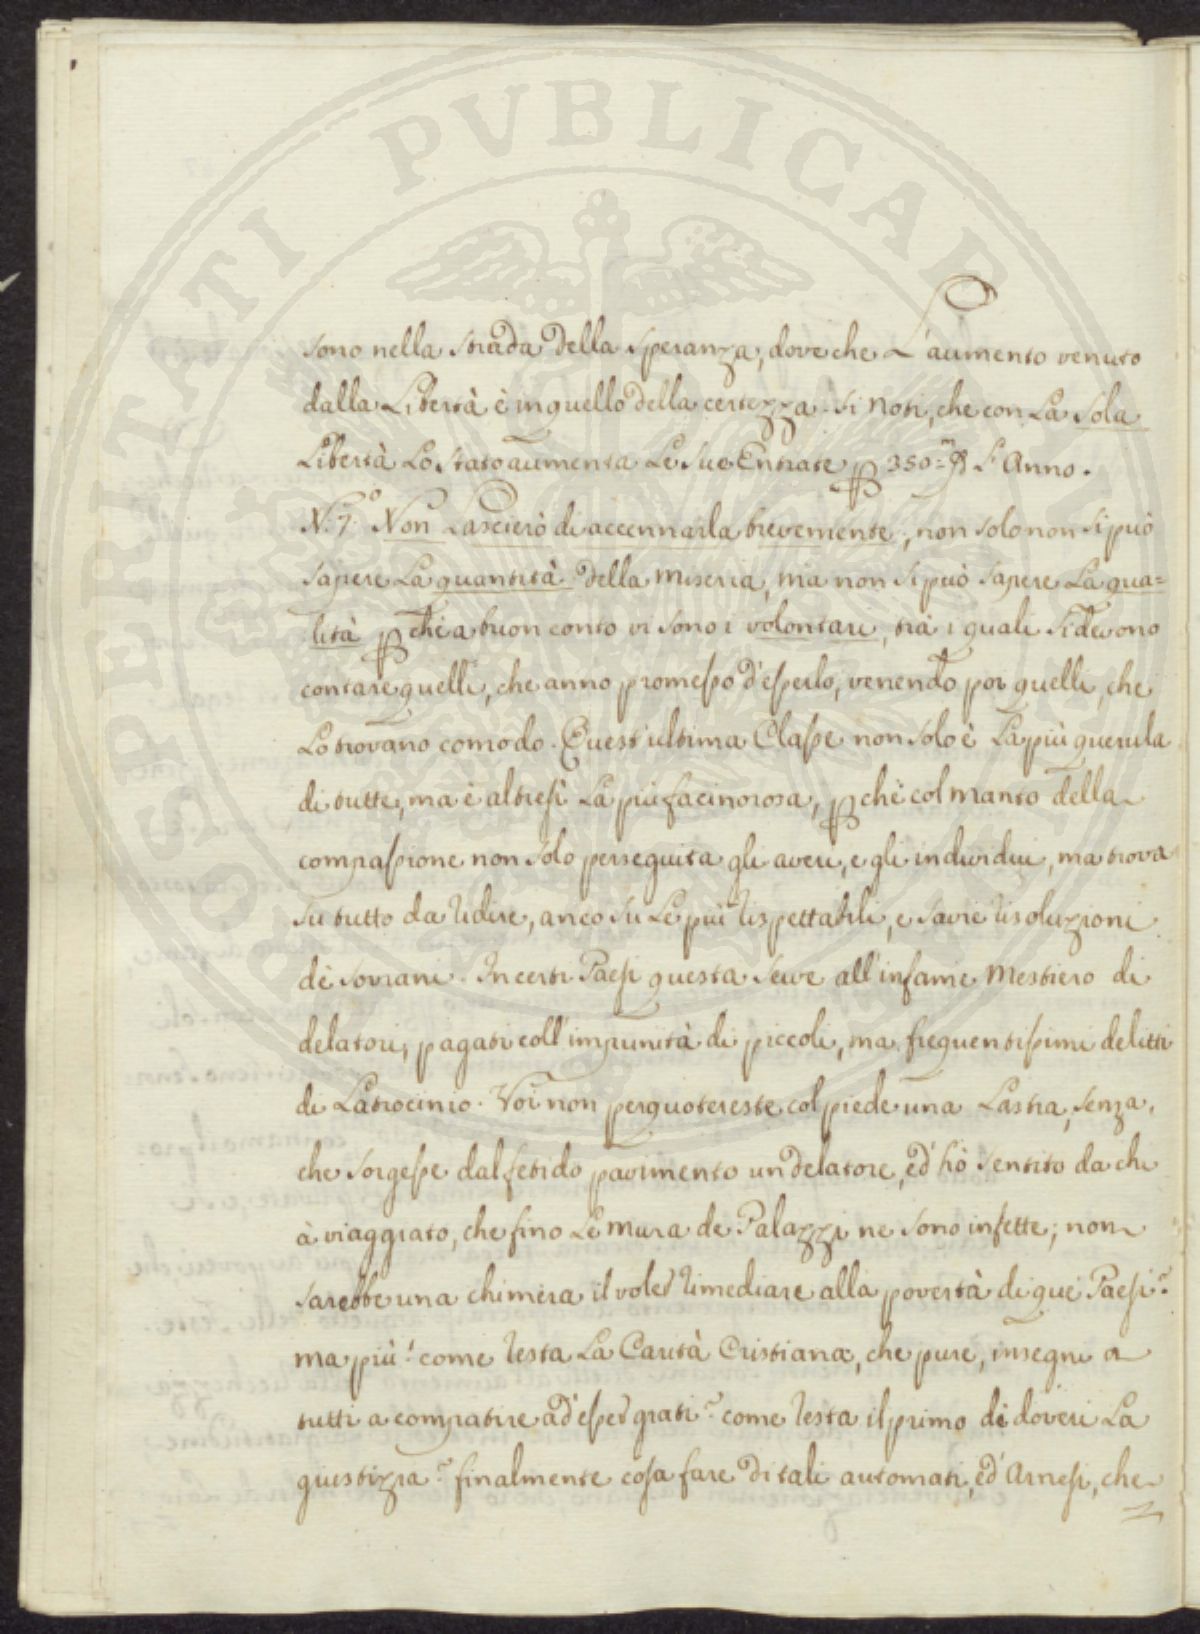 PROSPERITATI PVBLICAE
sono nella strada della speranza, dove che L'aumento venuto
dalla Libertà è in quello della certezza. si noti, che con La sola
Libertà Lo Stato aumenta Le Sue Entrate 350 L'Anno.
N.º 7.º Non Lascierò di accennarla brevemente, non solo non si può
sapere La quantità della miseria, ma non si può sapere La qua=
lità pchè a buon conto vi sono i volontari, trà i quali si devono
contare quelli, che anno promesso d'esserlo, venendo poi quelli, che
Lo trovano comodo. Quest'ultima Classe non solo è La più querula
di tutte, ma è altresì La più facinorosa, pchè col manto della
compassione non solo perseguita gli averi, e gli individui, ma trova
su tutto da ridire, anco su Le più rispettabili, e savie risoluzioni
de Sovrani. In certi Paesi questa serve all'infame Mestiero di
delatori, pagati coll'impunità di piccoli, ma frequentissimi delitti
di Latrocinio. Voi non perquotereste col piede una Lastra, senza,
che sorgesse dal fetido pavimento un delatore, ed hò sentito da chi
à viaggiato, che fino Le mura de Palazzi ne sono infette; non
sarebbe una chimera il voler rimediare alla povertà di que' Paesi?
ma più! come resta La Carità Cristiana, che pure, insegna a
tutti a compatire ad esser grati? come resta il primo di doveri La
giustizia? finalmente cosa fare di tali automati, ed Arnesi, che